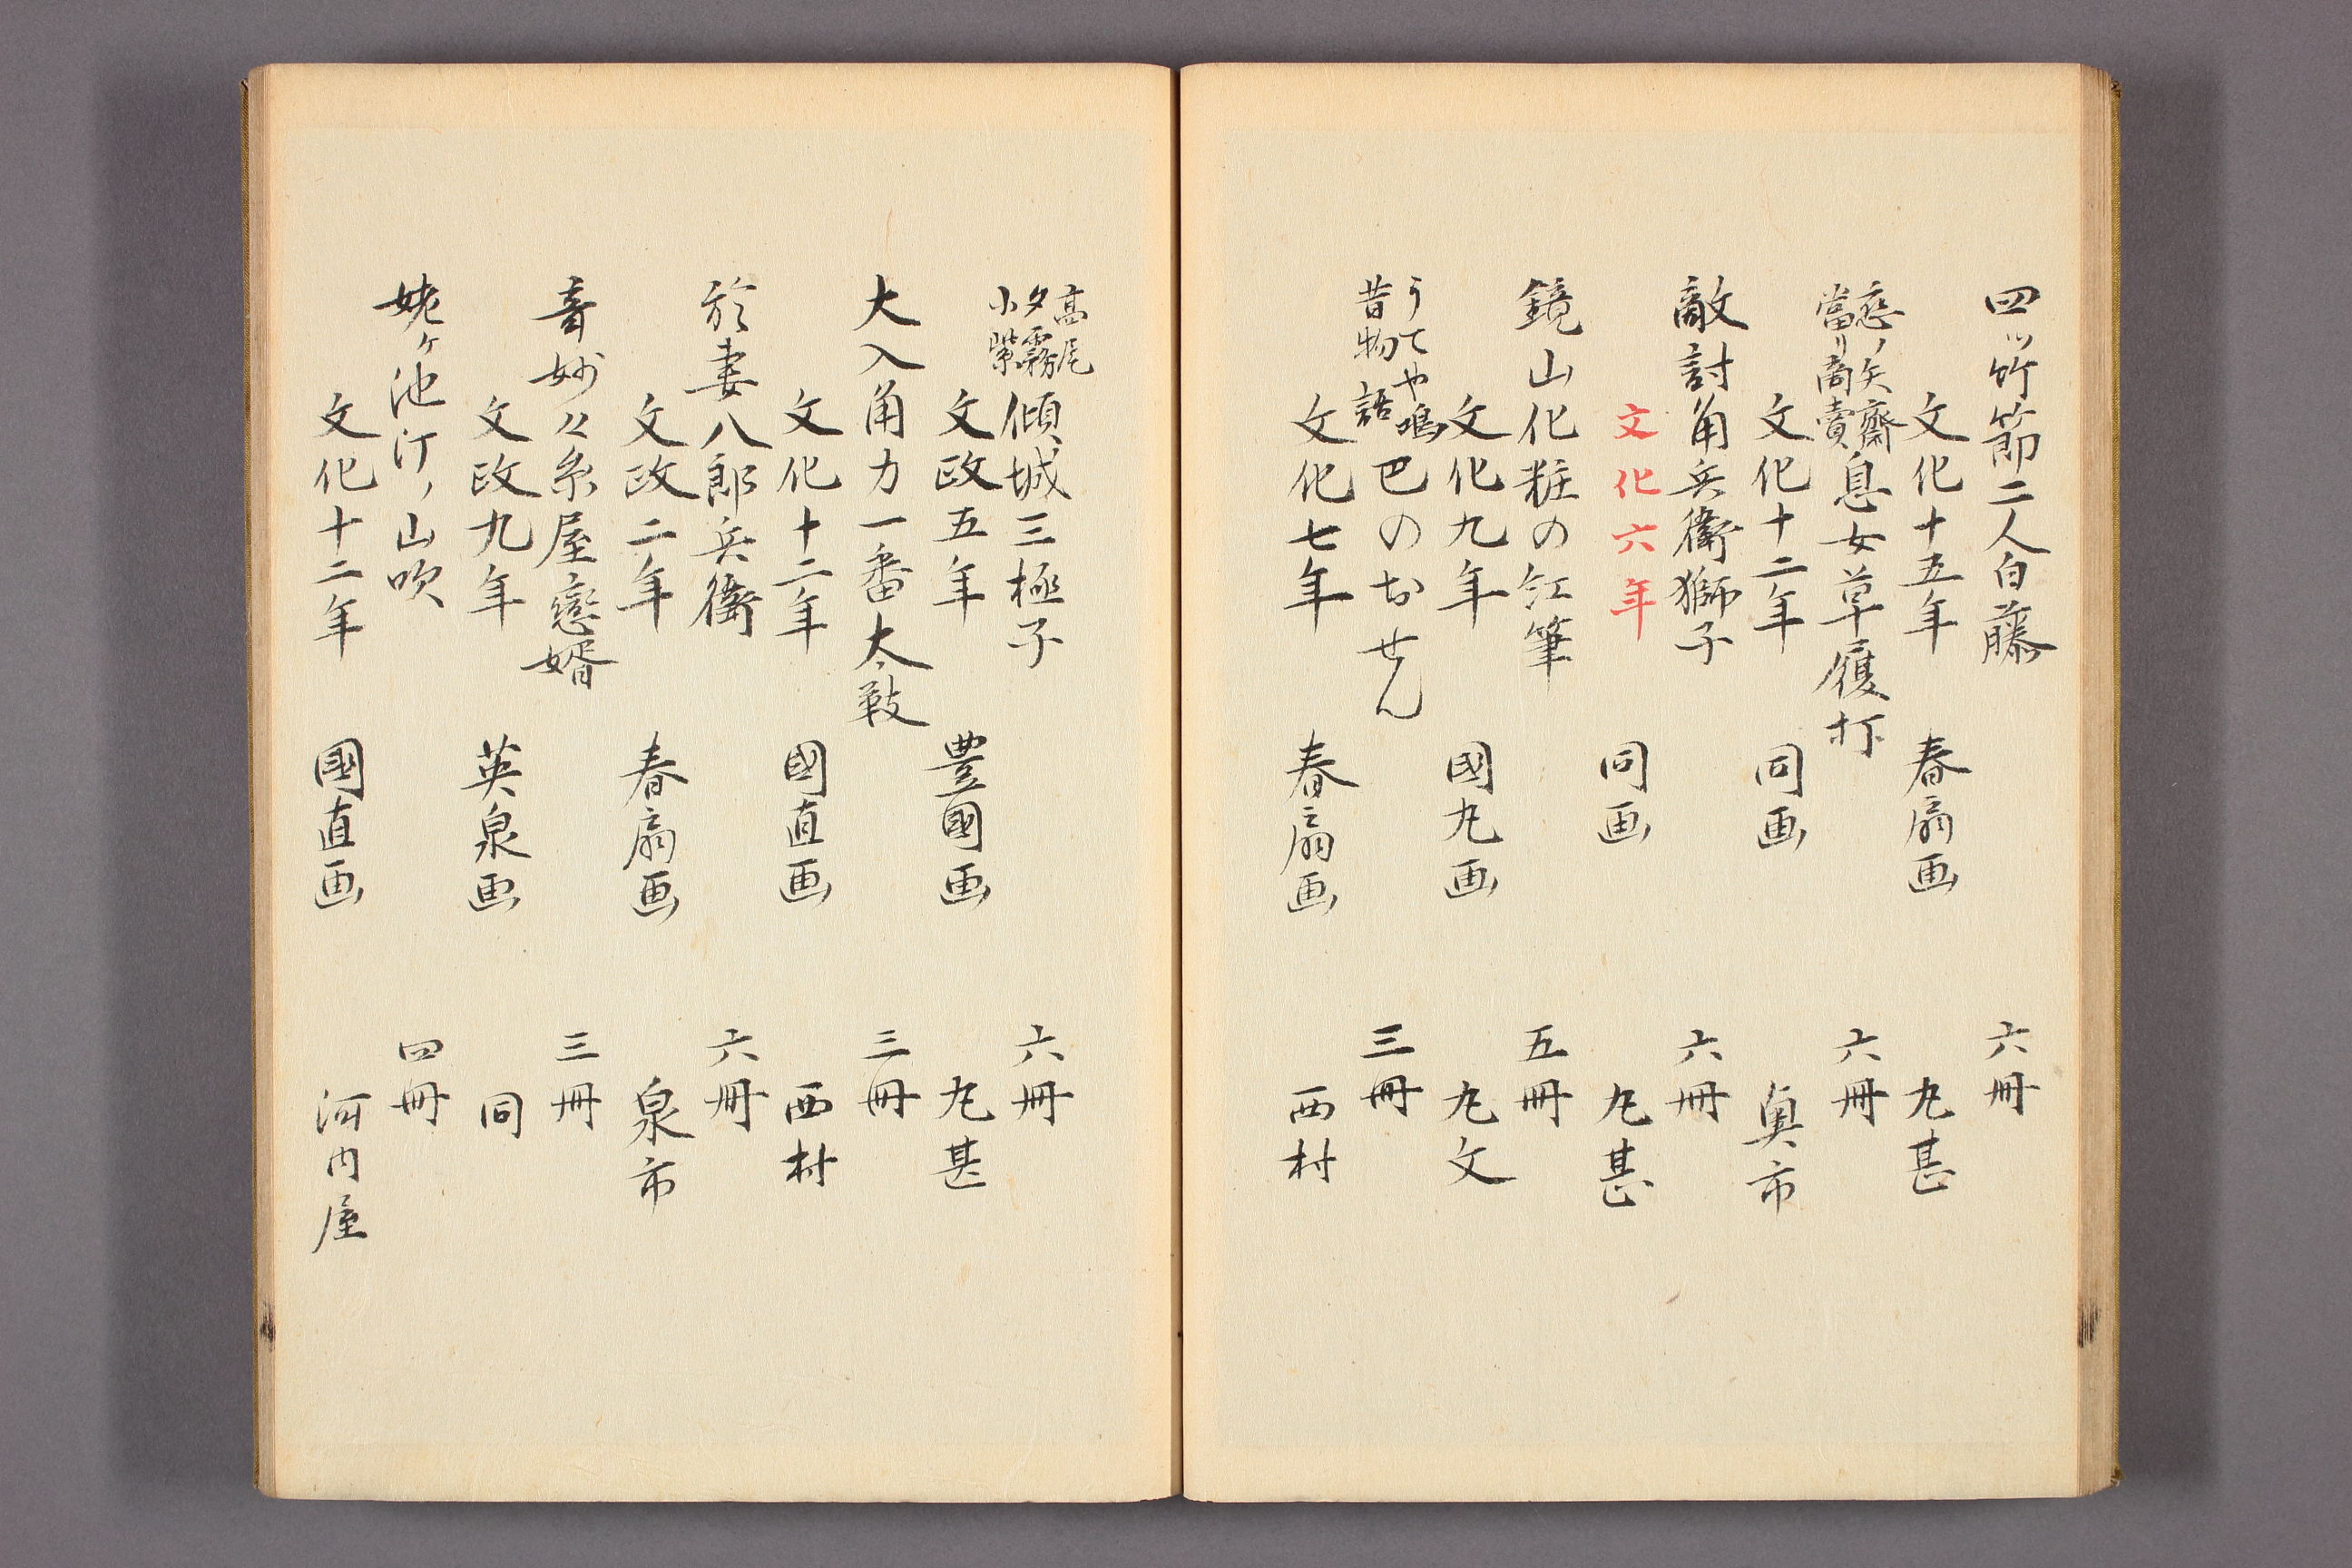 四ツ竹節二人白藤　六冊
文化十五年　春扇画　丸甚
恋ノ矢齋
當リ商賣
息女草履打　六冊
文化十二年　同画　奥市
敵討角兵衛獅子　六冊
文化六年　同画　丸甚
鏡山化粧の紅筆　五冊
文化九年　國丸画　丸文
うてや鳴
昔物語
巴のおせん　三冊
文化七年　春扇画　西村
高尾
夕霧
小紫
傾城三極子　六冊
文政五年　豊國画　丸甚
大入角力一番太鼓　三冊
文化十二年　國直画　西村
於妻八郎兵衛　六冊
文政二年　春扇画　泉市
音妙々糸屋戀婿　三冊
文政九年　英泉画　同
姥ヶ池汀ノ山吹　四冊
文化十二年　國直画　河内屋